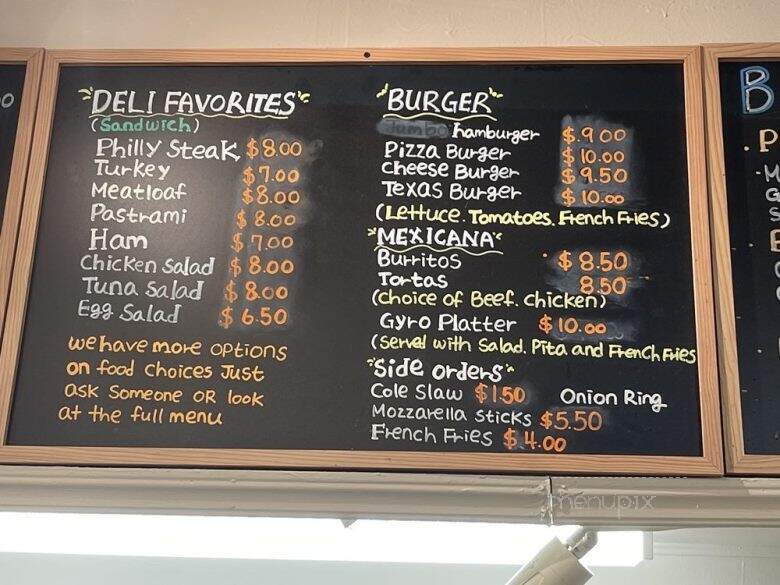 DELI FAVORITES
(Sandwich)
Philly Steak $8.00
Turkey $7.00
Meatloaf $8.00
Pastrami $8.00
Ham $7.00
Chicken Salad $8.00
Tuna Salad $8.00
Egg Salad $6.50
we have more options
on food choices Just
ask Someone OR look
at the full menu
BURGER
Jumbo hamburger $.900
Pizza Burger $10.00
Cheese Burger $9.50
Texas Burger $10.00
(Lettuce. Tomatoes. French Fries)
MEXICANA
Burritos $8.50
Tortas 8.50
(Choice of Beef. chicken)
Gyro Platter $10.00
(Served with Salad. Pita and French Fries
Side orders
Cole Slaw $1.50 Onion Ring
Mozzarella Sticks $5.50
French Fries $4.00
B
.P
menupix